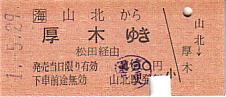 1.-5.29
海 山北 から
厚木 ゆき
松田経由
発売当日限り有効 円
下車前途無効 山北駅
小
山北
厚木